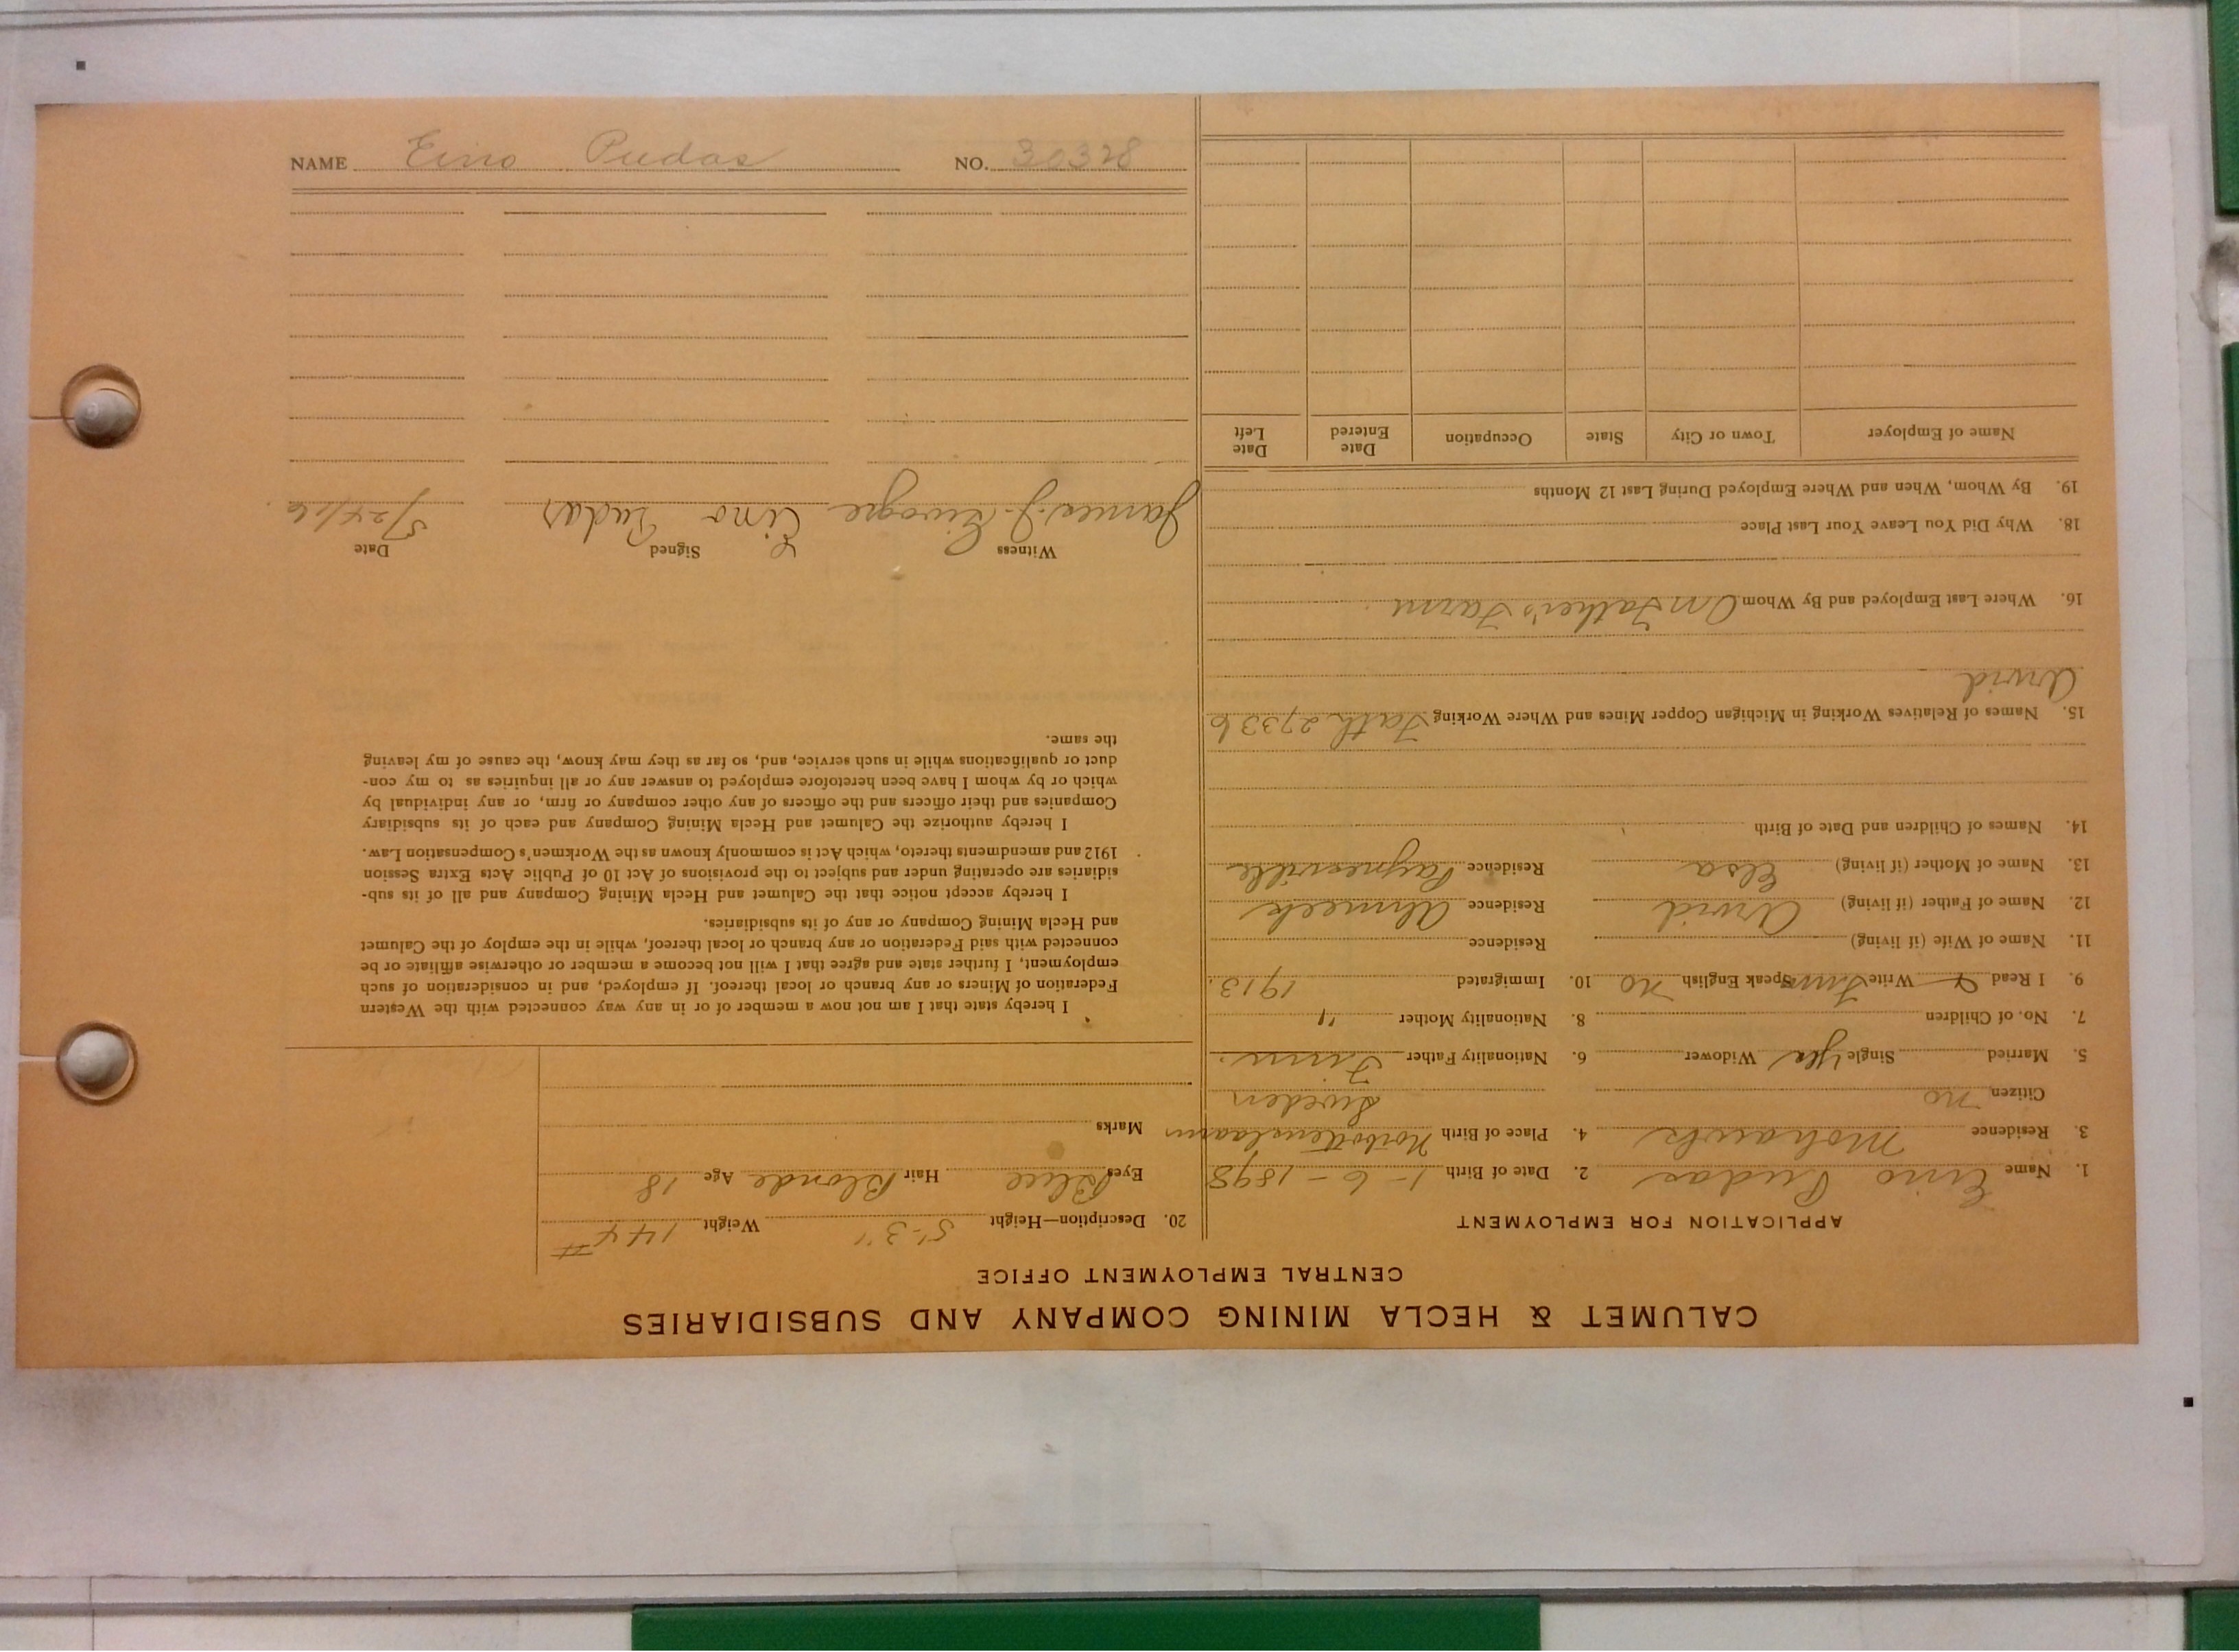 CALUMET & HECLA MINING COMPANY AND SUBSIDIARIES
CENTRAL EMPLOYMENT OFFICE
APPLICATION FOR EMPLOYMENT
1. Name Eino Pudas 2. Date of Birth 1-6-1898
3. Residence Mohawk 4. Place of Birth Norbottenslaann
Citizen no Sweden
5. Married Single Yes Widower 6. Nationality Father Finn.
7. No. of Children 8. Nationality Mother "
9. I Read & Write Finn Speak English no 10. Immigrated 1913.
11. Name of Wife (if living) Residence
12. Name of Father (if living) Arvid Residence Ahmeek
13. Name of Mother (if living) Elsa Residence Paynesville
14. Names of Children and Date of Birth
15. Names of Relatives Working in Michigan Copper Mines and Where Working Fath 27336
Arvid
16. Where Last Employed and By Whom On Father's Farm
18. Why Did You Leave Your Last Place
19. By Whom, When and Where Employed During Last 12 Months
Name of Employer Town or City State Occupation Date Entered Date Left
20. Description—Height 5'-3" Weight 144 #
Eyes Blue Hair Blonde Age 18
Marks
I hereby state that I am not now a member of or in any way connected with the Western
Federation of Miners or any branch or local thereof. If employed, and in consideration of such
employment, I further state and agree that I will not become a member or otherwise affiliate or be
connected with said Federation or any branch or local thereof, while in the employ of the Calumet
and Hecla Mining Company or any of its subsidiaries.
I hereby accept notice that the Calumet and Hecla Mining Company and all of its sub-
sidiaries are operating under and subject to the provisions of Act 10 of Public Acts Extra Session
1912 and amendments thereto, which Act is commonly known as the Workmen's Compensation Law.
I hereby authorize the Calumet and Hecla Mining Company and each of its subsidiary
Companies and their officers and the officers of any other company or firm, or any individual by
which or by whom I have been heretofore employed to answer any or all inquiries as to my con-
duct or qualifications while in such service, and, so far as they may know, the cause of my leaving
the same.
Witness Signed Date
James J. Eino Pudas 5/24/16.
NAME Eino Pudas NO. 30328